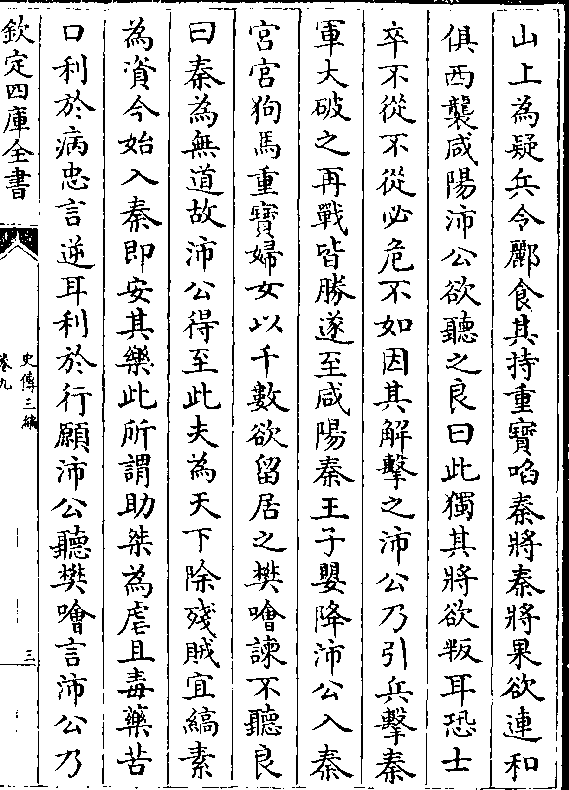 山上為疑兵令酈食其持重寳啗秦將秦將果欲連和
俱西襲咸陽沛公欲聽之良曰此獨其將欲叛耳恐士
卒不從不從必危不如因其解擊之沛公乃引兵擊秦
軍大破之再戰皆勝遂至咸陽秦王子嬰降沛公入秦
宫宫狗馬重寳婦女以千數欲留居之樊噲諫不聽良
曰秦為無道故沛公得至此夫為天下除殘賊宜縞素
為資今始入秦即安其樂此所謂助桀為虐且毒藥苦
口利於病忠言逆耳利於行願沛公聽樊噲言沛公乃
欽定四庫全書
史傳三編
卷九
三